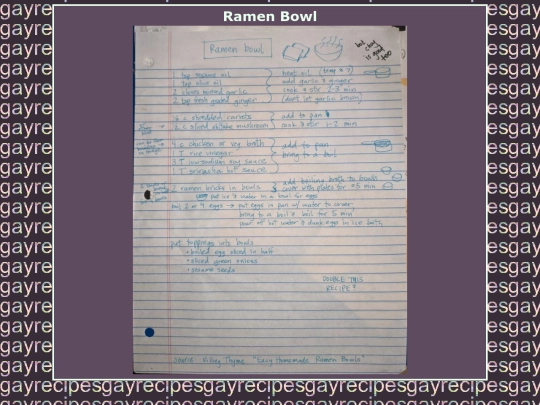 Ramen Bowl
Ramen bowl
1 tsp sesame oil
1 tsp olive oil
2 cloves minced garlic
2 tsp fresh grated ginger
heat oil
add garlic & ginger
cook & stir 2-3 min
(don't let garlic brown)
c shredded carrots
c sliced shiitake mushroom
add to pan
cook & stir 1-2 min
4 c chicken or veg broth
1 T rice vinegar
3 T low sodium soy sauce
1 T sriracha hot sauce
add to pan
bring to a boil
2 ramen bricks in bowls
add boiling broth to bowls
cover with plates for 5 min
put ice & water in a bowl for eggs
boil 2 or 4 eggs → put eggs in pan w/ water to cover
bring to a boil & boil for 5 min
pour off hot water & dunk eggs in ice bath
put toppings into bowls
• boiled egg sliced in half
• sliced green onions
• sesame seeds
DOUBLE THIS
RECIPE?
Source: Killing Thyme "Easy Homemade Ramen Bowls"
gayrecipesgayrecipesgayrecipesgayrecipes